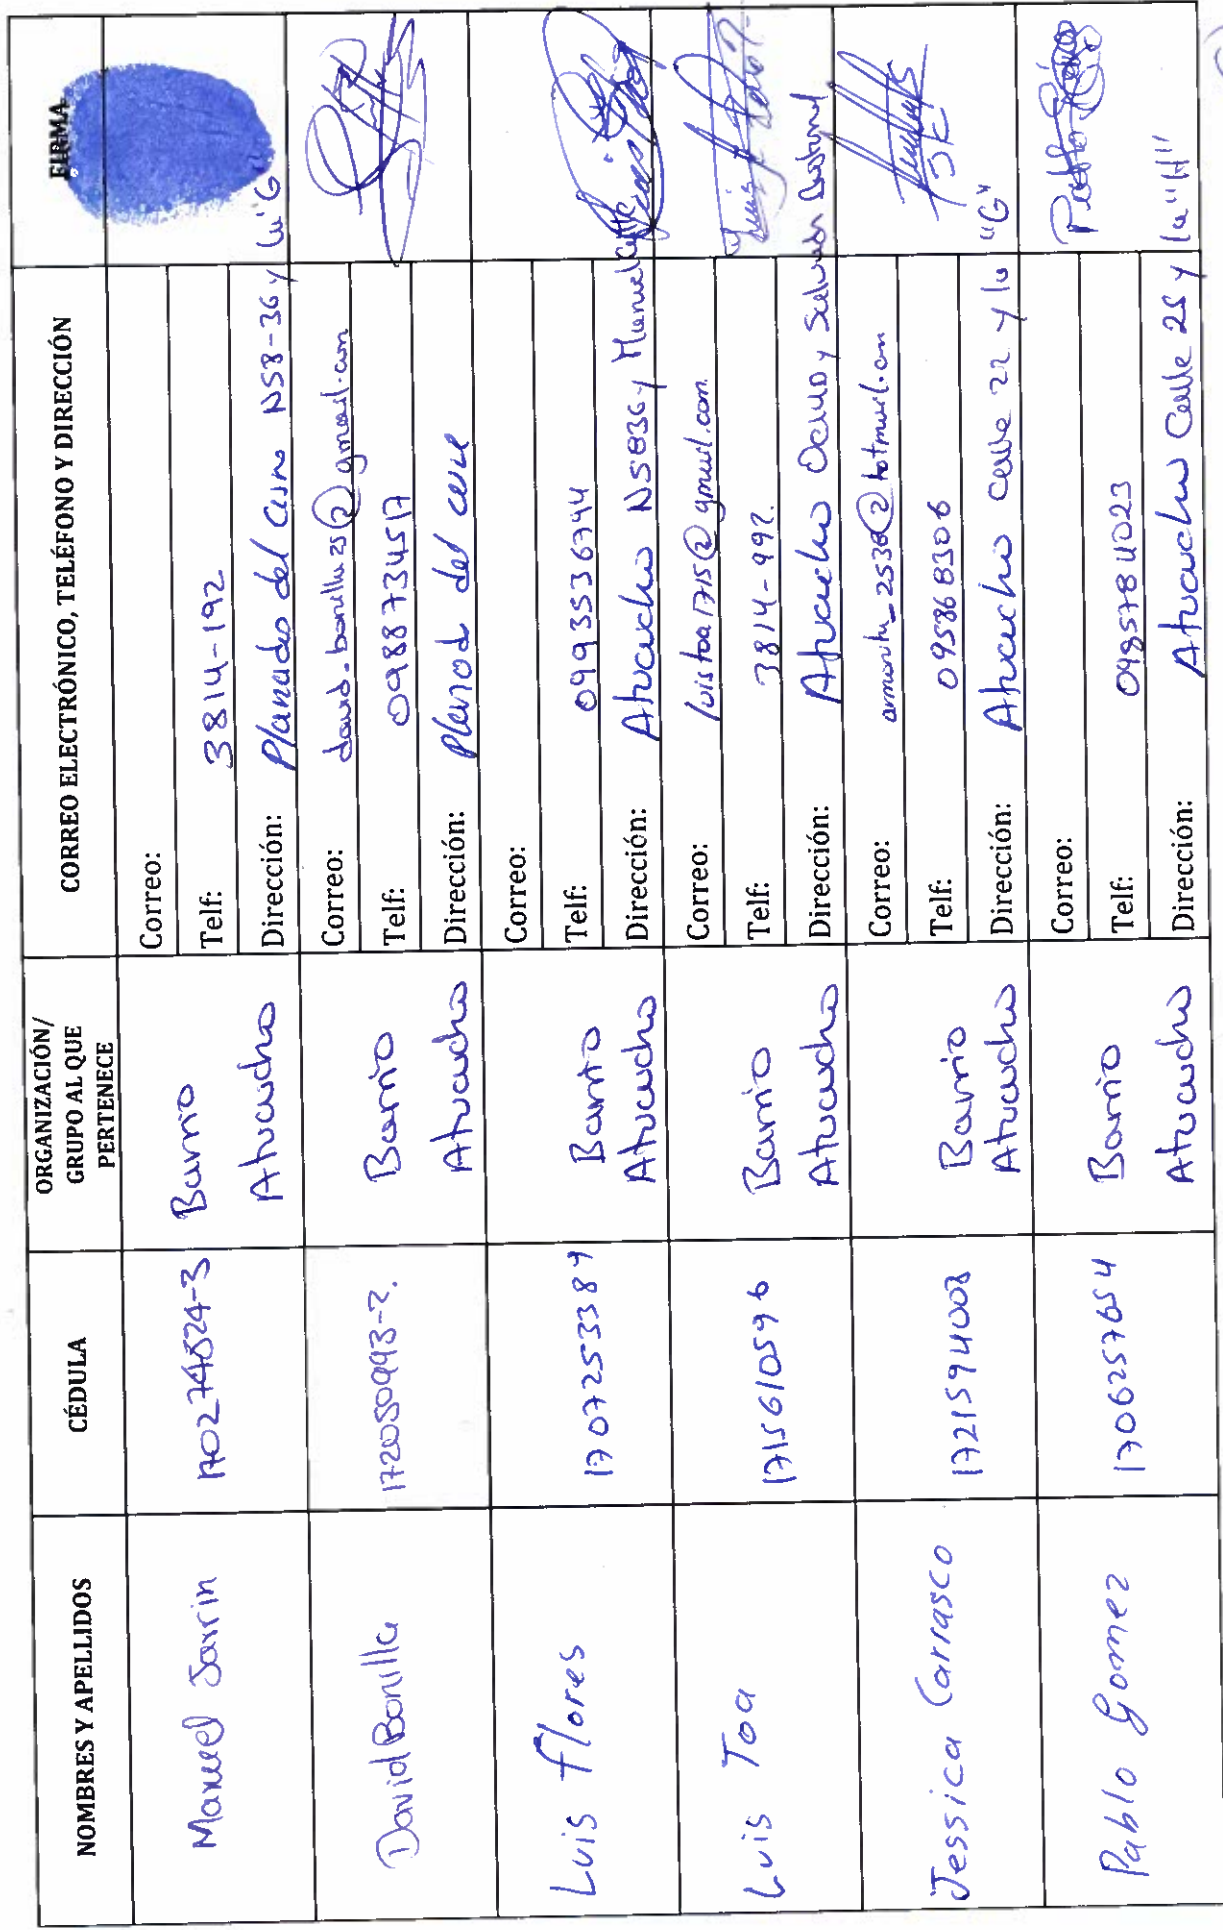 NOMBRES Y APELLIDOS
CÉDULA
ORGANIZACIÓN/
GRUPO AL QUE
PERTENECE
CORREO ELECTRÓNICO, TELÉFONO Y DIRECCIÓN
FIRMA
Manuel Jarrin
170274824-3
Barrio
Atucucho
Correo:
Telf: 3814-192
Dirección: Planada del Carmo N58-36 y
la "G
David Bonilla
172050993-2.
Barrio
Atucucho
Correo: david_bonilla25@gmail.com
Telf: 0988734517
Dirección: del
Luis Flores
1707253384
Barrio
Atucucho
Correo:
Telf: 0993536744
Dirección: Atucucho N5836 y Manuel
Luis Toa
1715610596
Barrio
Atucucho
Correo: luistoa1715@gmail.com.
Telf: 3814-992.
Dirección: Atucucho y Salvador
Luis Toa
Jessica Carrasco
1721594008
Barrio
Atucucho
Correo: @hotmail.com
Telf: 095868306
Dirección: Atucucho Calle 22 y la
"G"
Pablo Gomez
1706257654
Barrio
Atucucho
Correo:
Telf: 0985784023
Dirección: Atucucho Calle 25 y
la "H"
Pablo